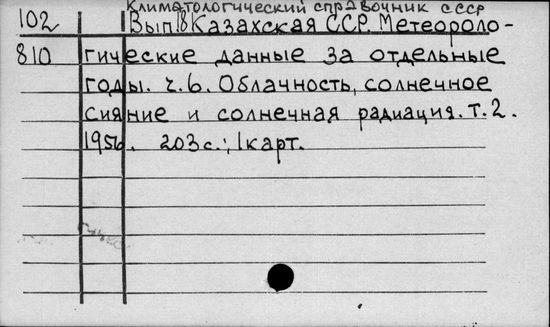 Климатологический справочник СССР
102 Вып.18 Казахская ССР. Метеороло-
810 гические данные за отдельные
годы. ч.6. Облачность, солнечное
сияние и солнечная радиация. Т.2.
1956. 203 с.; 1 карт.